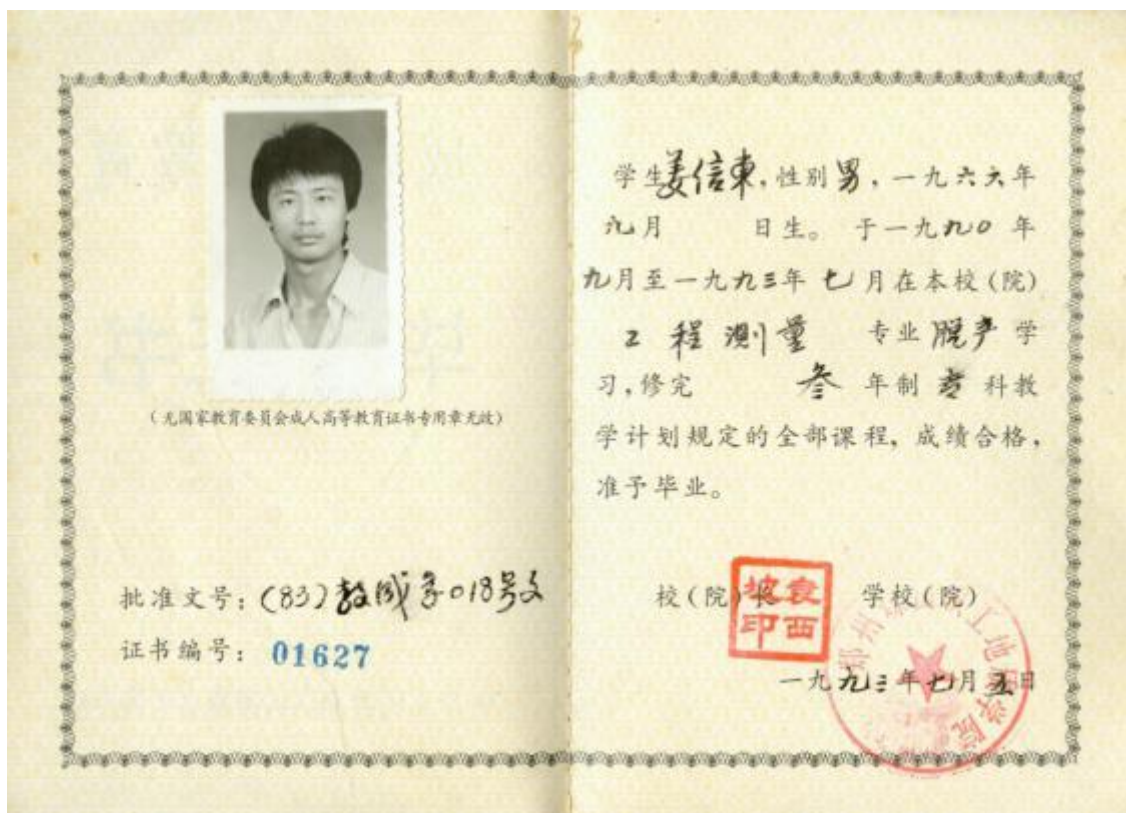 （无国家教育委员会成人高等教育证书专用章无效）
批准文号：(83)教成字018号文
证书编号：01627
学生姜信東，性别男，一九六六年
九月 日生。于一九九0年
九月至一九九三年七月在本校（院）
工程测量 专业脱产学
习，修完 叁年制专科教
学计划规定的全部课程，成绩合格，
准予毕业。
校（院）长 学校（院）
袁西坡印
一九九三年七月五日
郑州 工地 学院